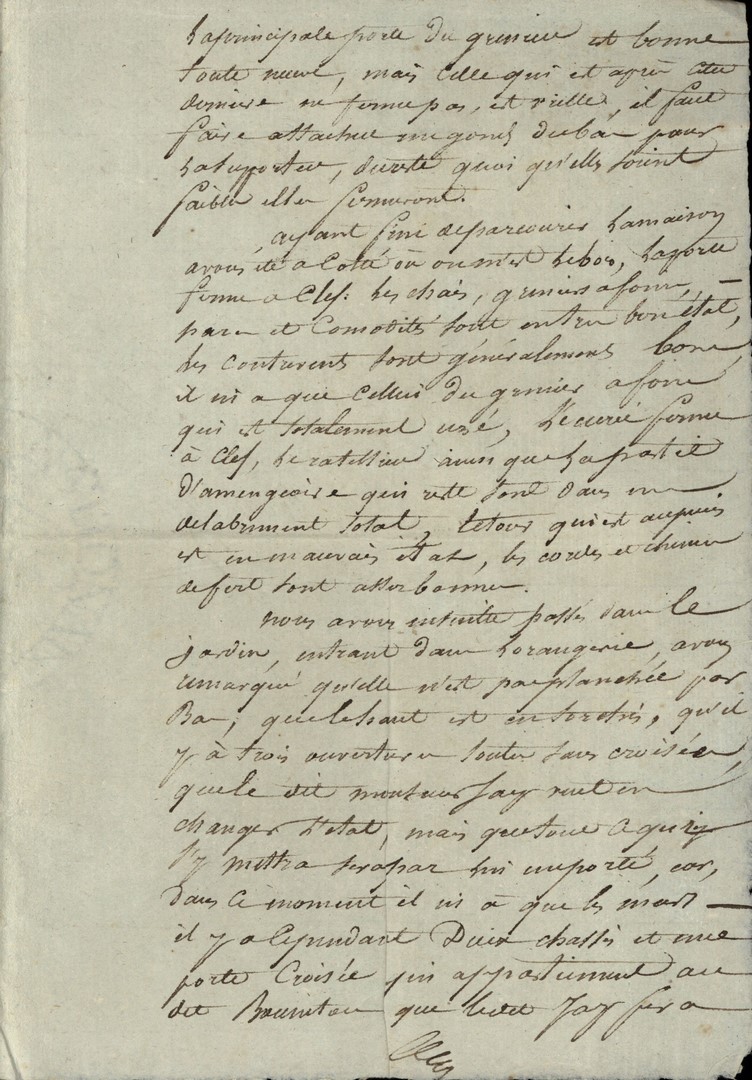 la principale porte du grenier est bonne
toute neuve, mais celle qui est après cette
derniere ne ferme pas, est vielle, il faut
faire attacher un gond du bas pour
la suporter, du reste quoi qu'elles soient
faibles elles fermeront.
ayant fini de parcourir la maison
avons été a cotté où on met le bois, la porte
ferme a clef: les chais, greniers a foin, —
parc et comodités sont en très bon état,
les contrevents sont généralement bons,
il ni a que cellui du grenier a foin
qui est totalement usé, l'ecurie ferme
à clef, le ratellier ainsi que la partie
d'amengeoire qui reste sont dans un
delabrement total, le tour qui est au puis
est en mauvais etat, les cordes et chaines
de fert sont asses bonnes.
nous avons ensuitte passés dans le
jardin, entrant dans l'orangerie, avons
remarqué qu'elle n'est pas planchée par
bas, que le haut est en torchis, qu'il
y à trois ouvertures toutes sans croisées,
que le dit monsieur Jay veut en
changer l'etat, mais que tout ce qu'il
y mettra sera par lui emporté, car,
dans ce moment il ni à que les murs —
il y a cependant deux chassis et une
porte croisée qui appartiennent au
dit que ledit Jay fera